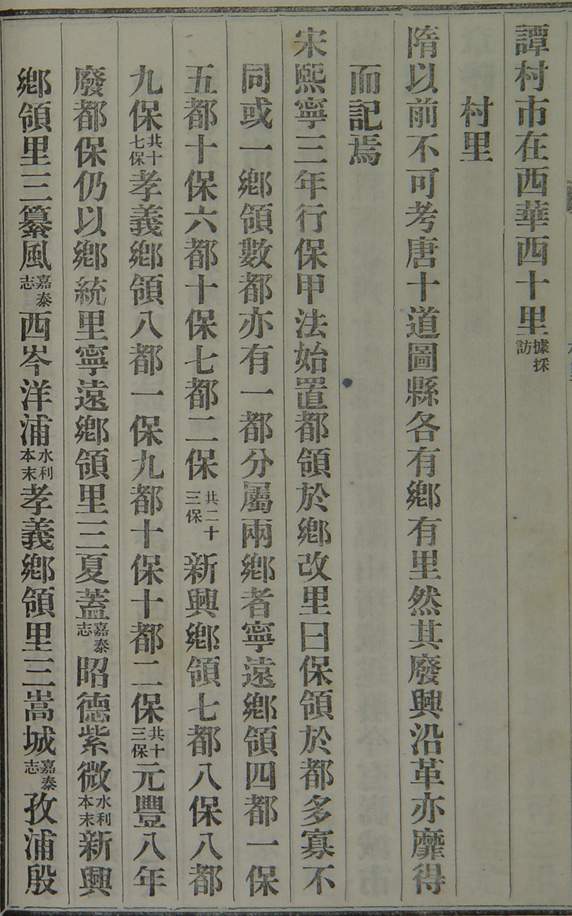 譚村市在西華西十里據採訪
村里
隋以前不可考唐十道圖縣各有鄉有里然其廢興沿革亦靡得
而記焉
宋熙寧三年行保甲法始置都領於鄉改里曰保領於都多寡不
同或一鄉領數都亦有一都分屬兩鄉者寧遠鄉領四都一保
五都十保六都十保七都二保共二十三保新興鄉領七都八保八都
九保共十七保孝義鄉領八都一保九都十保十都二保共十三保元豐八年
廢都保仍以鄉統里寧遠鄉領里三夏蓋嘉泰志昭德紫微水利本末新興
鄉領里三纂風嘉泰志西岑洋浦水利本末孝義鄉領里三嵩城嘉泰志孜浦殷